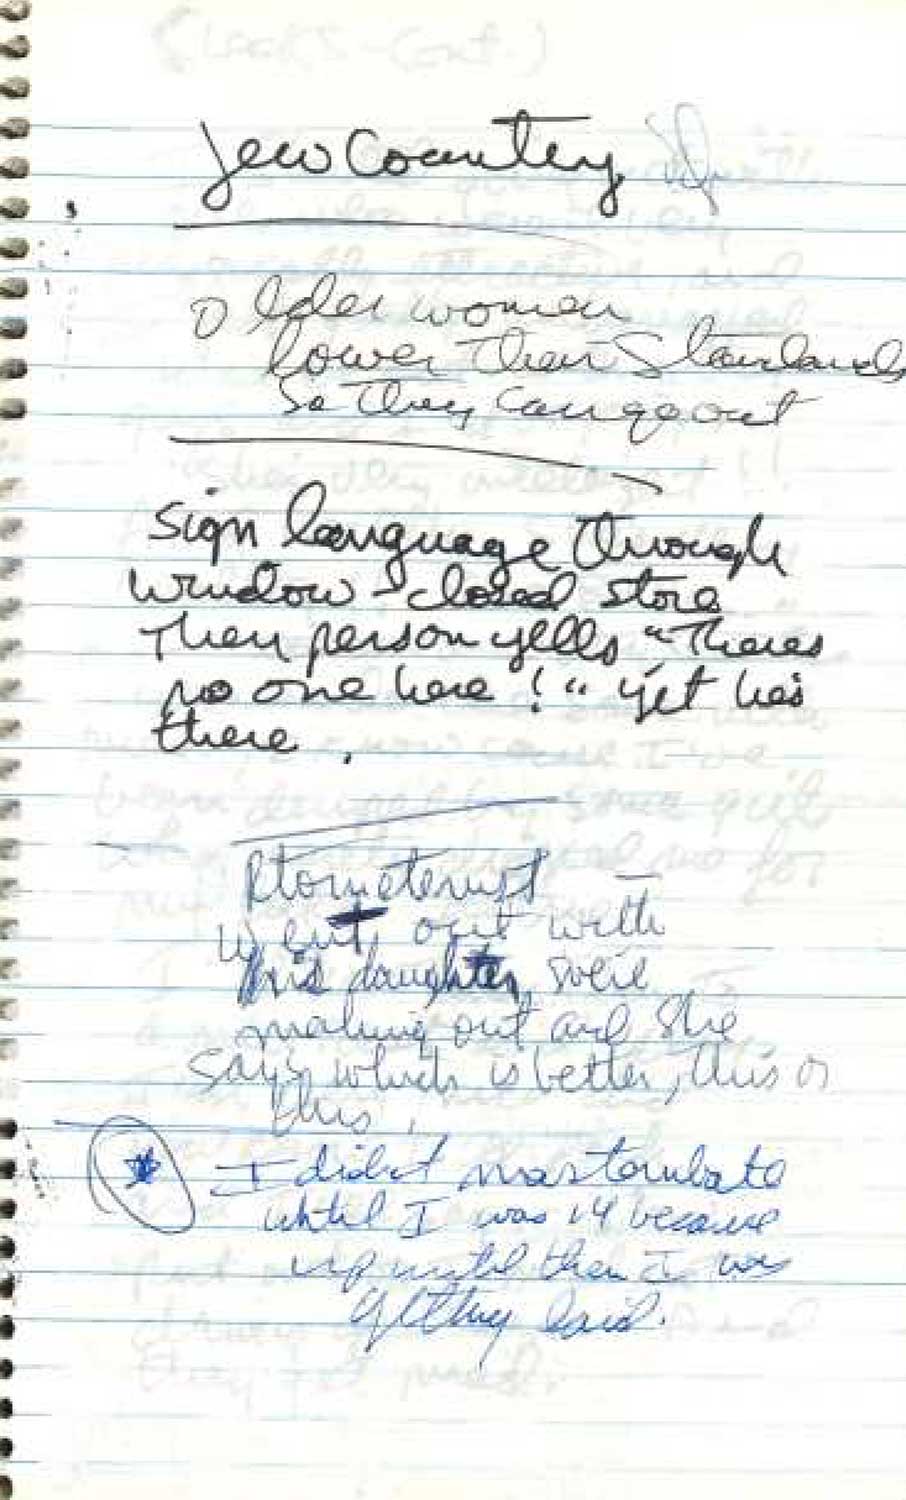 Jew Country
Older women
lower their standards
so they can go out
Sign language through
window - closed store
Then person yells "Theres
no one here!" yet he's
there.
Went out with
his daughter,
making out and she
says which is better, this or
this.
I didn't masterubate
until I was 14 because
up until then I was
getting laid.